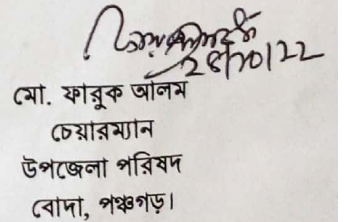 ২৪/১০/২২
মো. ফারুক আলম
চেয়ারম্যান
উপজেলা পরিষদ
বোদা, পঞ্চগড়।